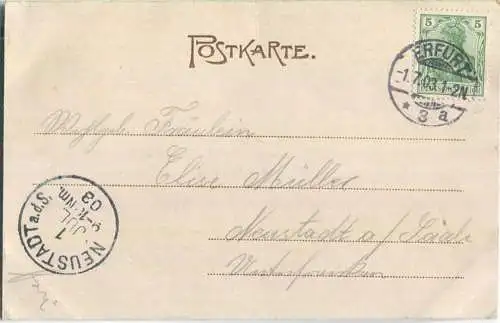 POSTKARTE.
5 5
ERFURT
1.7.03.1-2N.
* 3 a
Fräulein
Elise Müller
Neustadt a/Saale
Unterfranken
NEUSTADT a.d.S.
1
JUL
Nm.
03